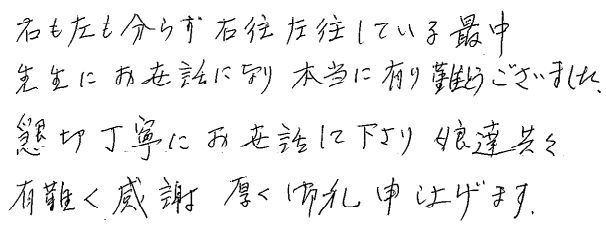 右も左も分らず右往左往している最中
先生にお世話になり本当に有り難うございました。
懇切丁寧にお世話して下さり娘達共々
有難く感謝厚く御礼申し上げます。